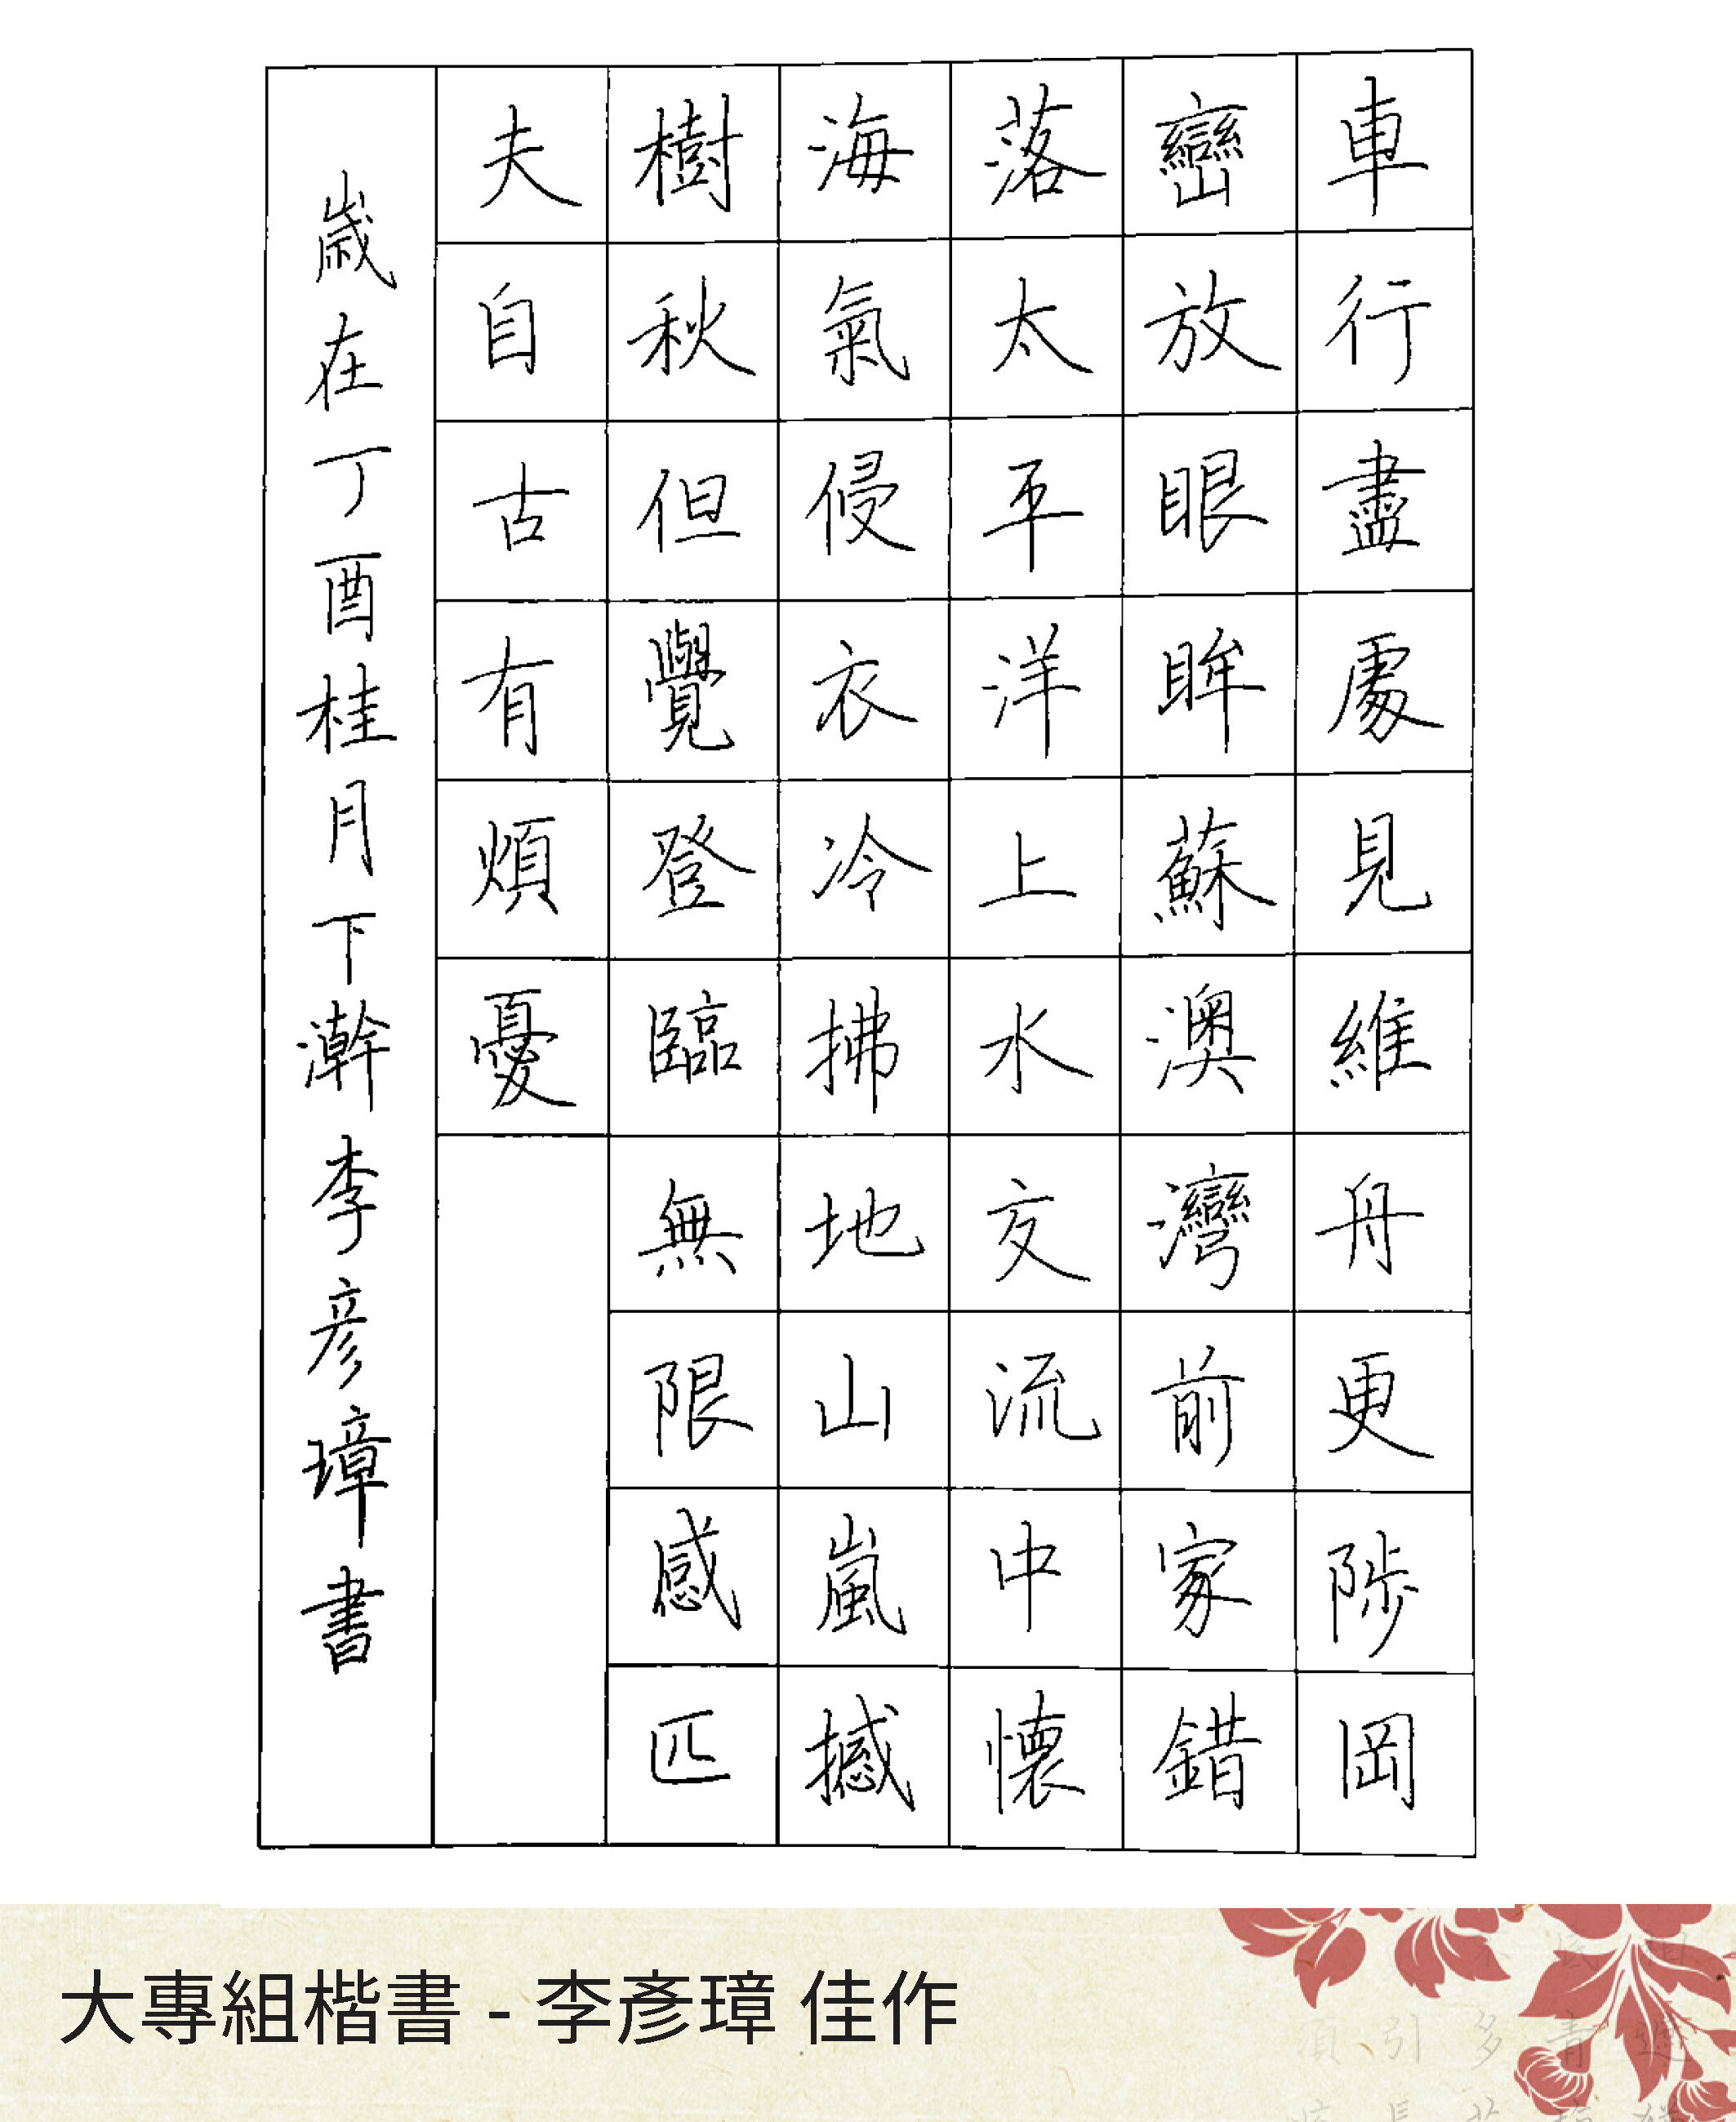 車行盡處見維舟更陟岡
巒放眼眸蘇澳灣前家錯
落太平洋上水交流中懷
海氣侵衣冷拂地山嵐撼
樹秋但覺登臨無限感匹
夫自古有煩憂
歲在丁酉桂月下澣李彥璋書
大專組楷書 - 李彥璋 佳作